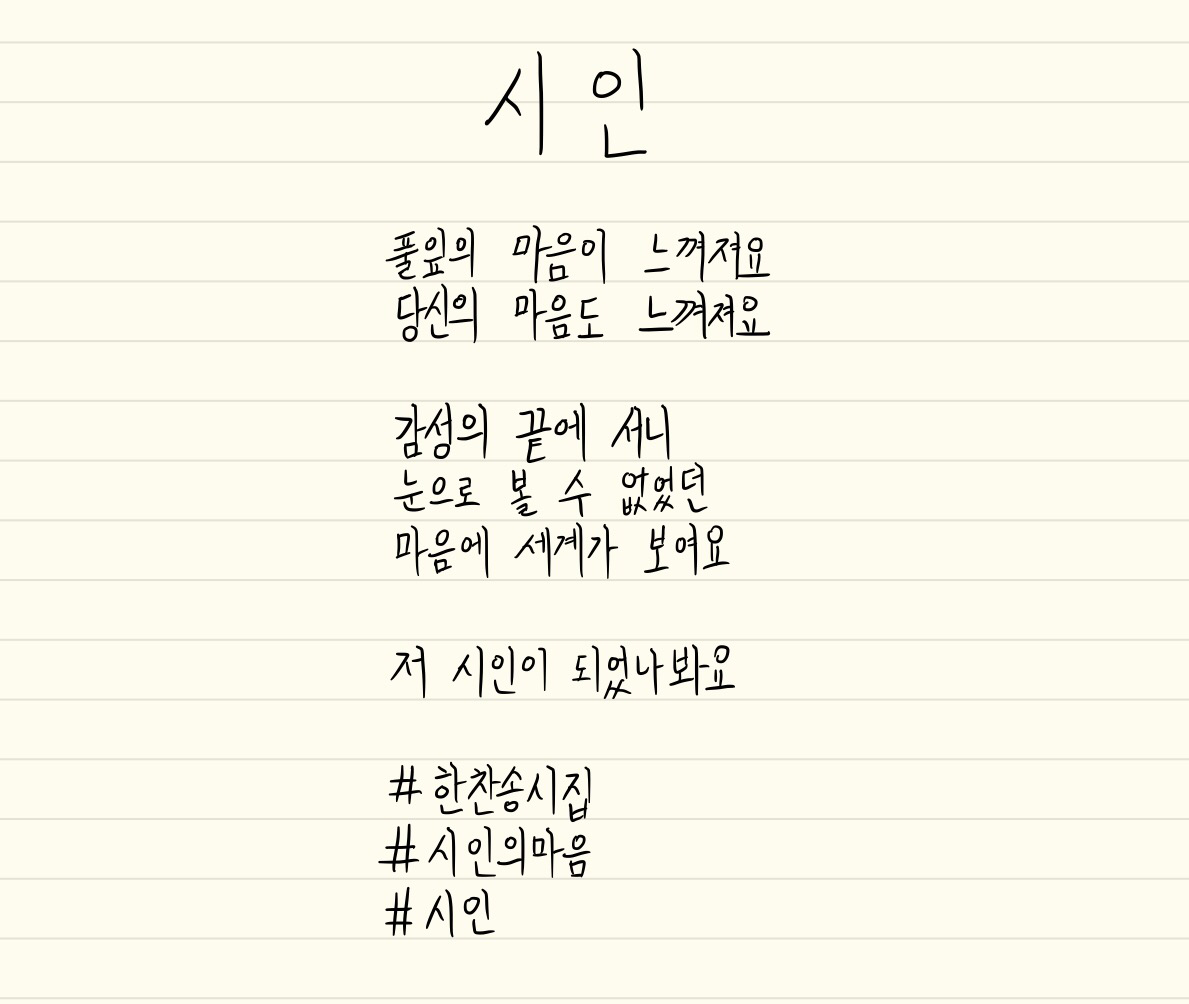 시인
풀잎의 마음이 느껴져요
당신의 마음도 느껴져요
감성의 끝에 서니
눈으로 볼 수 없었던
마음에 세계가 보여요
저 시인이 되었나봐요
#한찬송시집
#시인의마음
#시인